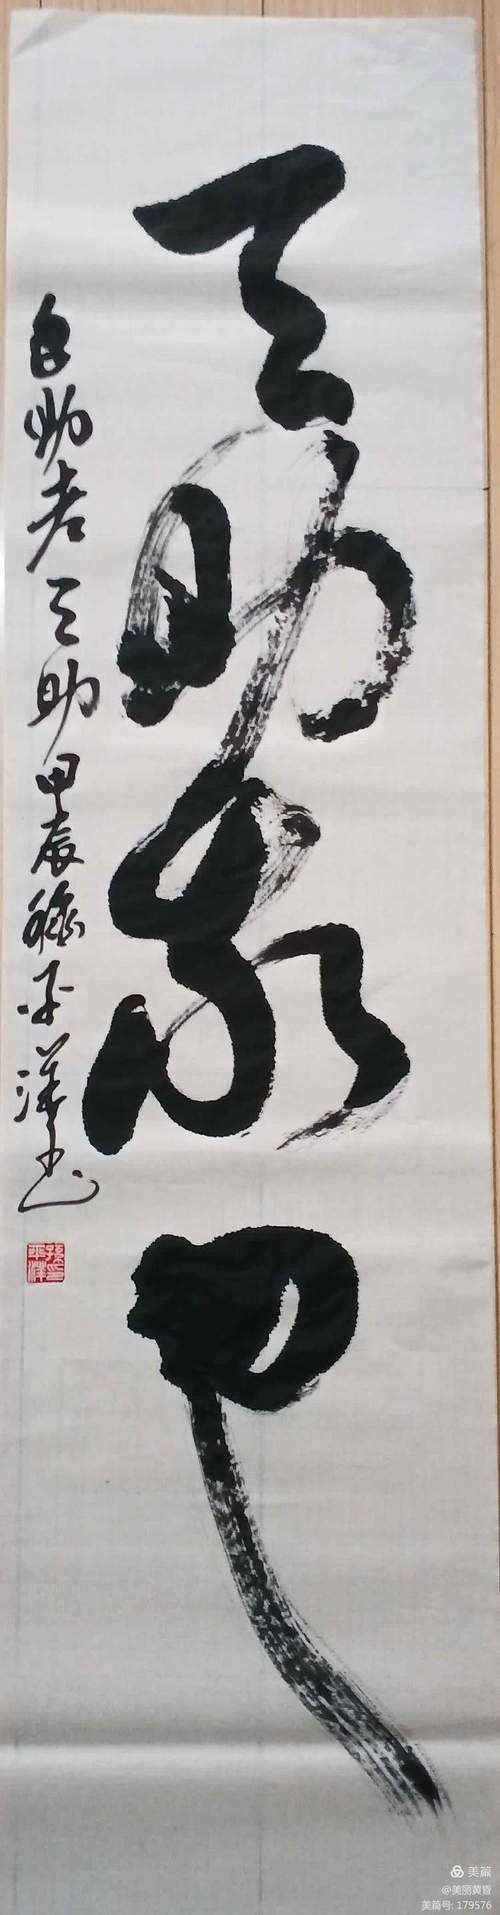 天助我也
自助者天助甲辰孫平洋书
孫印平洋
美篇
@美丽黄昏
美篇号: 179576